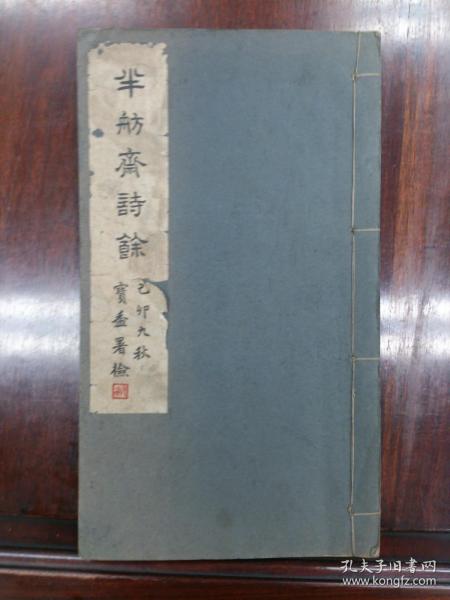 半舫齋詩餘
己卯九秋
寶盉署檢
孔夫子旧书网
www.kongfz.com